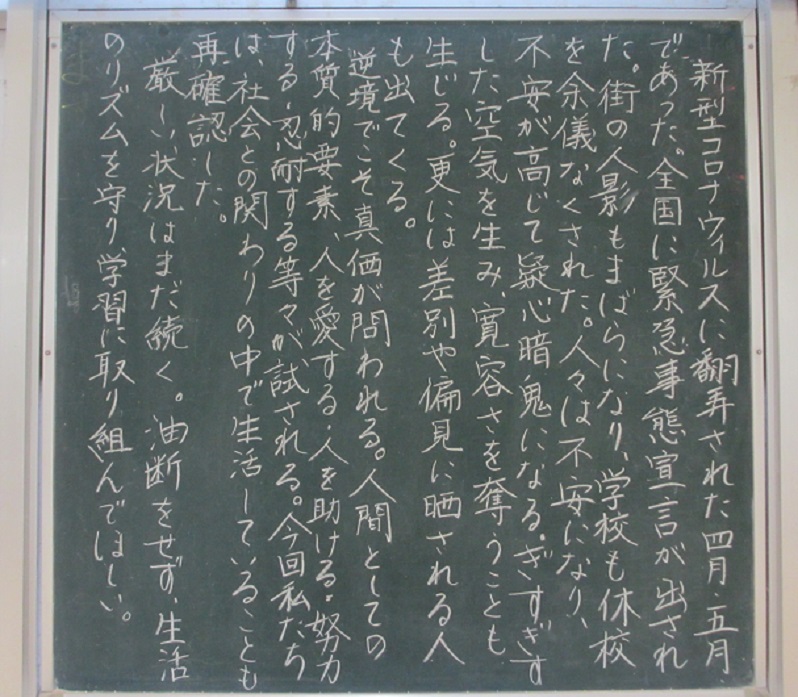 新型コロナウィルスに翻弄された四月・五月
であった。全国に緊急事態宣言が出され
た。街の人影もまばらになり、学校も休校
を余儀なくされた。人々は不安になり、
不安が高じて疑心暗鬼になる。ぎすぎす
した空気を生み、寛容さを奪うことも
生じる。更には差別や偏見に晒される人
も出てくる。
逆境でこそ真価が問われる。人間としての
本質的要素、人を愛する・人を助ける・努力
する・忍耐する等々が試される。今回私たち
は、社会との関わりの中で生活していることも
再確認した。
厳しい状況はまだ続く。油断をせず、生活
のリズムを守り学習に取り組んでほしい。